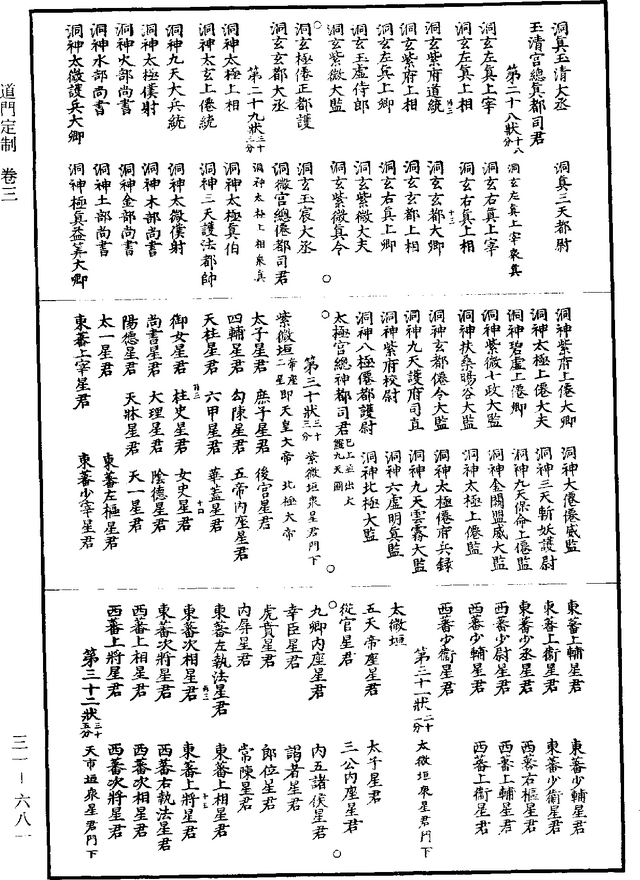 洞真玉清大丞　洞真三天都尉
玉清宫總真都司君
第二十八狀十八分　洞玄左真上宰衆真
洞玄左真上宰　洞玄右真上宰
洞玄左真上相　洞玄右真上相
洞玄紫府道統　洞玄玄都大卿
洞玄紫府上相　洞玄玄都上相
洞玄左真上卿　洞玄右真上卿
洞玄玉虚侍郎　洞玄紫微大夫
洞玄紫微大監　洞玄紫微真令
洞玄極僊正都護　洞玄玉宸大丞
洞玄玄都大丞　洞微宫總僊都司君
第二十九狀三十三分　洞神太極上相衆真
洞神太極上相　洞神太極真伯
洞神太玄上僊統　洞神三天護法都帥
洞神九天大兵統　洞神太微僕射
洞神太極僕射　洞神木部尚書
洞神火部尚書　洞神金部尚書
洞神水部尚書　洞神土部尚書
洞神太微護兵大卿　洞神極真益筭大卿
洞神紫府上僊大卿　洞神大僊僊威監
洞神太極上僊大夫　洞神三天斬妖護尉
洞神碧虚上僊卿　洞神九天保命上僊監
洞神紫微七政大監　洞神金闕盟威大監
洞神扶桑暘谷大監　洞神太極上僊監
洞神玄都僊令大監　洞神太極僊府兵録
洞神九天護府司直　洞神九天雲霧大監
洞神紫府校尉　洞神六虚明真監
洞神八極僊都護尉　洞神北極大監
太極宫總神都司君已上並出大羅九天圖
第三十狀三十三分　紫微垣衆星君門下
紫微垣帝座二星即天皇大帝　北極大帝
太子星君　庶子星君　後宫星君
四輔星君　勾陳星君　五帝内座星君
天柱星君　六甲星君　華蓋星君
御女星君　柱史星君　女史星君
尚書星君　大理星君　陰德星君
陽德星君　天牀星君　天一星君
太一星君　東蕃左樞星君
東蕃上宰星君　東蕃少宰星君
東蕃上輔星君　東蕃少輔星君
東蕃上衛星君　東蕃少衛星君
東蕃少丞星君　西蕃右樞星君
西蕃少尉星君　西蕃上輔星君
西蕃少輔星君　西蕃上衛星君
西蕃少衛星君
第三十一狀二十一分　太微垣衆星君門下
太微垣
五天帝座星君　太子星君
從官星君　三公内座星君
九卿内座星君　内五諸侯星君
幸臣星君　謁者星君
虎賁星君　郎位星君
内屏星君　常陳星君
東蕃左執法星君　東蕃上相星君
東蕃次相星君　東蕃上將星君
東蕃次將星君　西蕃右執法星君
西蕃上相星君　西蕃次相星君
西蕃上將星君　西蕃次將星君
第三十二狀三十五分　天市垣衆星君門下
道門定制　卷三
三一－六八一